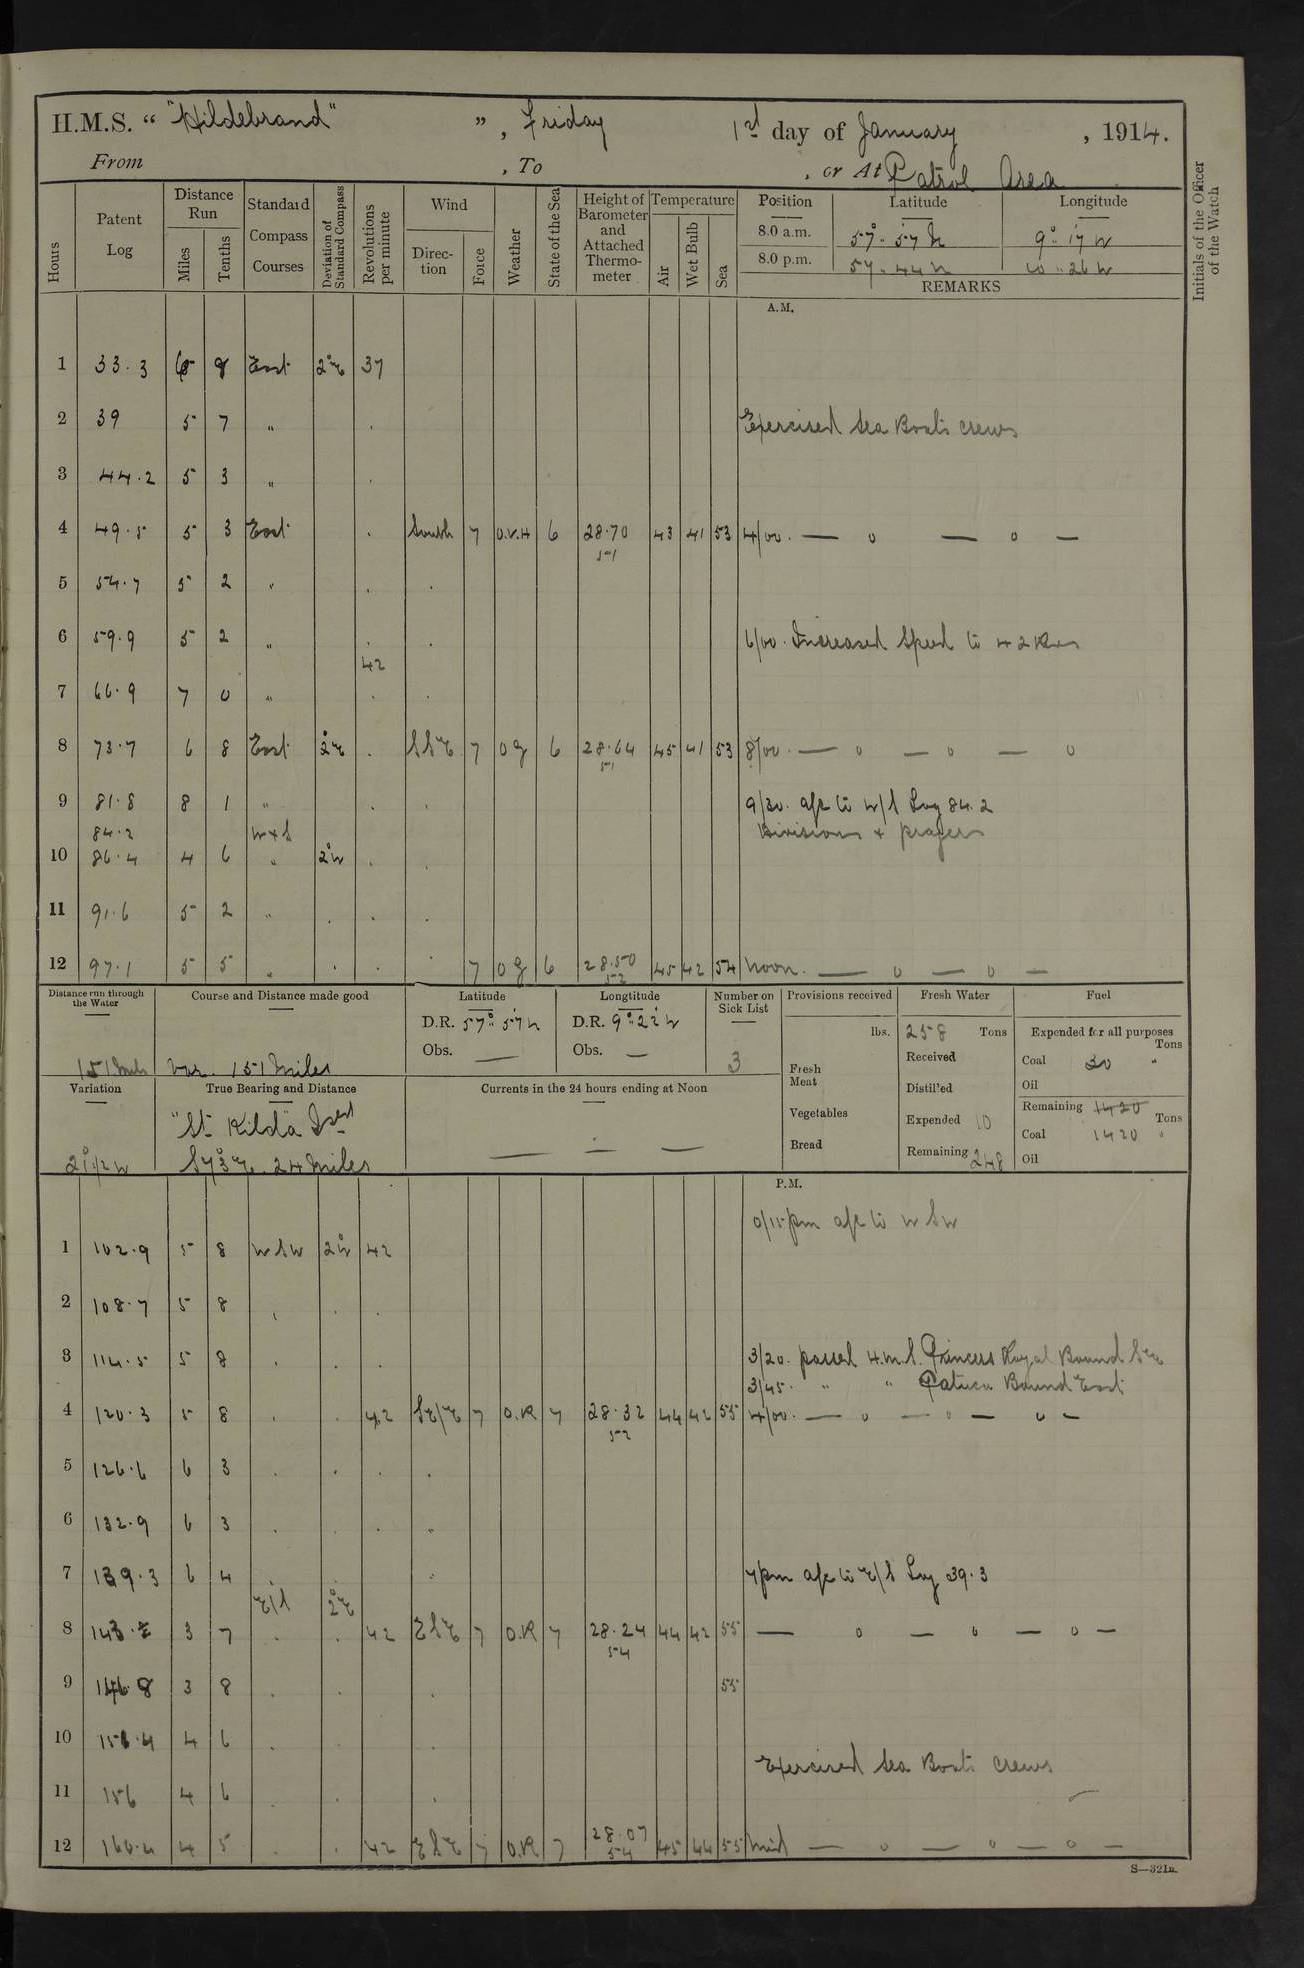 H.M.S. “ "Hildebrand" ” , Friday 1st day of January , 1914.
From , To , or At Patrol Area
Hours Patent Log Distance Run Miles Tenths Standard Compass Courses Deviation of Standard Compass Revolutions per minute Wind Direction Force Weather State of the Sea Height of Barometer and Attached Thermometer Temperature Air Wet Bulb Sea Position Latitude Longitude Initials of the Officer of the Watch
8.0 a.m. 57°. 57 N 9°. 17 W
8.0 p.m. 57. 44 N 10. 26 W
REMARKS
A.M.
1 33.3 8 East 2°E 37
2 39 5 7 " . Exercised Sea Boats crews
3 44.2 5 3 " .
4 49.5 5 3 East . South 7 O.V.H 6 28.70 51 43 41 53 4/00. — o — o —
5 54.7 5 2 " . .
6 59.9 5 2 " . . 6/00. Increased Speed to 42 Revs
42
7 66.9 7 0 " . .
8 73.7 6 8 East 2°E . SSE 7 o g 6 28.64 51 45 41 53 8/00. — o — o — o
9 81.8 8 1 " . . 9/30. a/c to W/S Log 84.2
84.2 W x S Divisions + prayers
10 86.4 4 6 " 2°W . .
11 91.6 5 2 " . . .
12 97.1 5 5 " . . . 7 o g 6 28.50 52 45 42 54 Noon. — o — o —
Distance run through the Water Course and Distance made good Latitude Longtitude Number on Sick List Provisions received Fresh Water Fuel
D.R. 57°. 57 N D.R. 9°. 22 W lbs. 258 Tons Expended for all purposes Tons
Obs. — Obs. — Received Coal 30 "
151 Miles Var. 151 Miles 3 Fresh Meat Distilled Oil
Variation True Bearing and Distance Currents in the 24 hours ending at Noon Vegetables Expended 10 Remaining 1420 Tons
"St Kilda Isd Bread Coal 1420 "
21°1/2 W S73°E. 24 Miles — — — Remaining 248 Oil
P.M.
0/15 pm a/c to W S W
1 102.9 5 8 W S W 2°W 42
2 108.7 5 8 . . .
3 114.5 5 8 . . . 3/20. passed H.M.S. Princess Royal Bound See
3/45. " " Patuca Bound East
4 120.3 5 8 . . 42 SE/E 7 O.R 7 28.32 52 44 42 55 4/00. — o — o — o —
5 126.6 6 3 . . . .
6 132.9 6 3 . . . .
7 139.3 6 4 . . . 7 pm a/c to E/S Log 39.3
E/S 2°E
8 143 3 7 . . 42 ESE 7 O.R 7 28.24 54 44 42 55 — o — o — o —
9 146.8 3 8 . . . 55
10 4 6 . .
Exercised Sea Boats crews
11 156 4 6 . . .
12 160.4 4 5 . . 42 ESE 7 O.R 7 28.07 54 45 44 55 Mid — o — o — o —
S—321a.